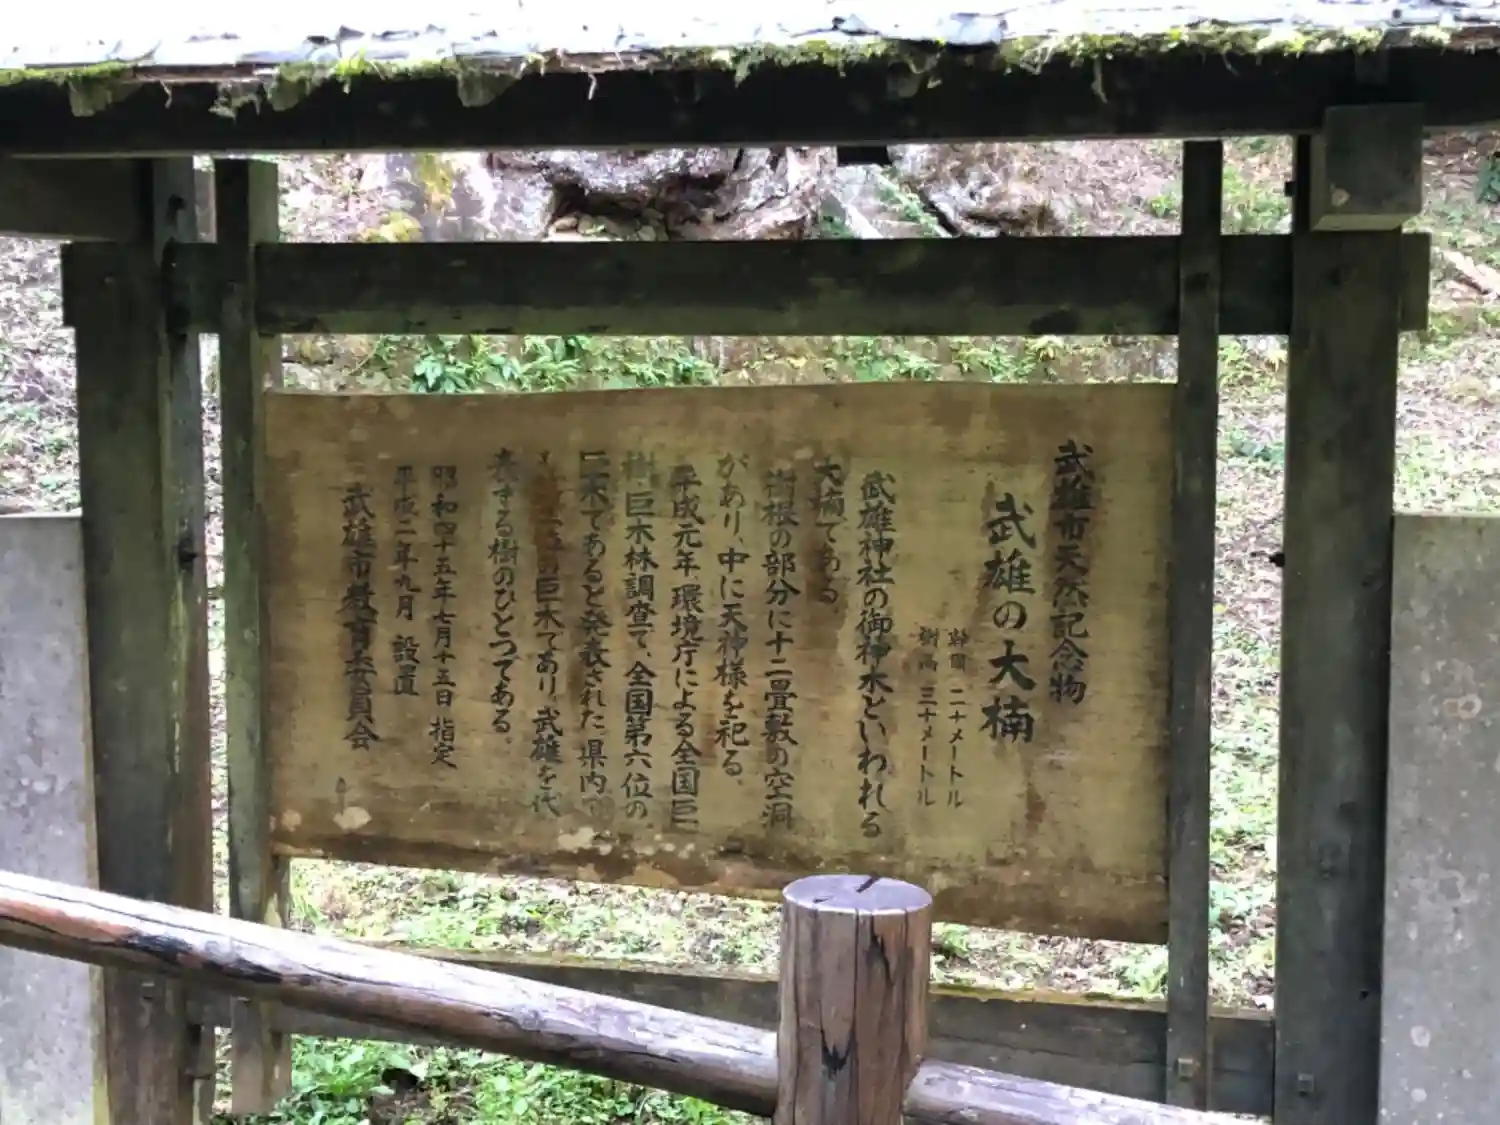 武雄市天然記念物
武雄の大楠
幹周 二十メートル
樹高 三十メートル
武雄神社の御神木といわれる
大楠である。
樹根の部分に十二畳敷の空洞
があり、中に天神様を祀る。
平成元年、環境庁による全国巨
樹・巨木林調査で、全国第六位の
巨木であると発表された。県内で
の巨木であり、武雄を代
表する樹のひとつである。
昭和四十五年七月十五日 指定
平成二年九月 設置
武雄市教育委員会